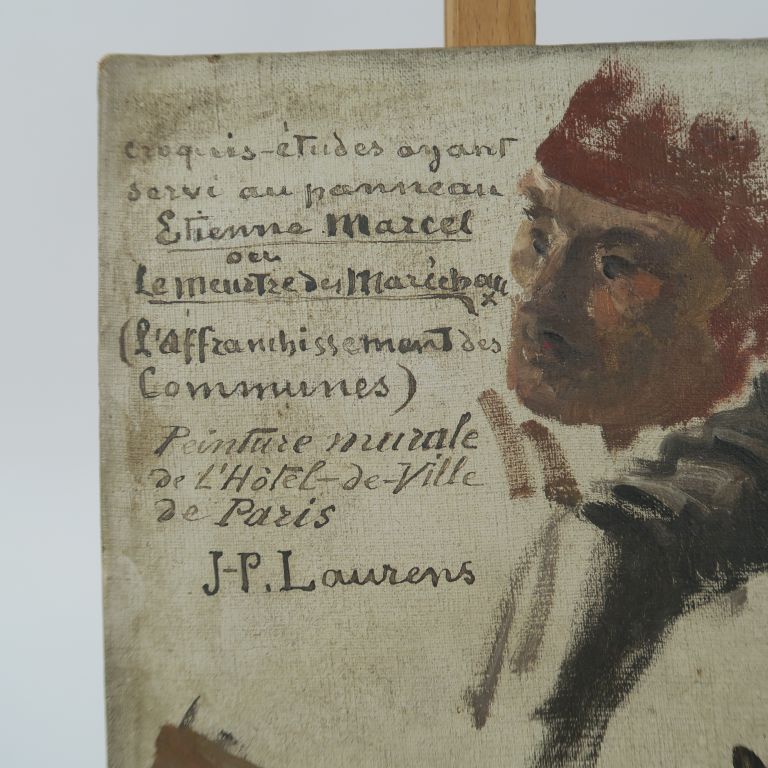 croquis-études ayant
servi au panneau
Etienne Marcel
ou
Le meurtre des Maréchaux
(L'Affranchissement des
Communes)
Peinture murale
de L'Hôtel-de-Ville
de Paris
J-P. Laurens